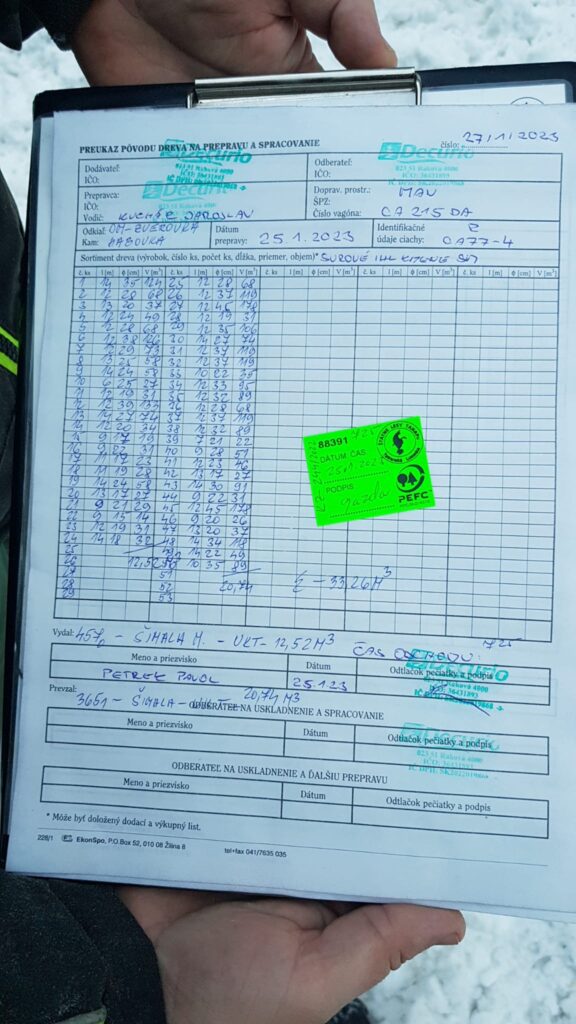 PREUKAZ PÔVODU DREVA NA PREPRAVU A SPRACOVANIE
číslo: 27/1/2023
Dodávateľ:
IČO:
Decurio
023 51 Raková 4000
Odberateľ:
IČO:
Decurio
023 51 Raková 4000
IČO: 36431893
Prepravca:
IČO:
Decurio
Vodič: KUCHÁR JAROSLAV
Doprav. prostr.: MAN
ŠPZ:
Číslo vagóna: CA 215 DA
Odkiaľ: OM-ZVEROVKA
Kam: HABOVKA
Dátum prepravy: 25.1.2023
Identifikačné údaje ciachy: CA77-4
Sortiment dreva (výrobok, číslo ks, počet ks, dĺžka, priemer, objem)* SUROVÉ IHL KITENIE
č. ks l [m] φ [cm] V [m³] č. ks l [m] φ [cm] V [m³] č. ks l [m] φ [cm] V [m³] č. ks l [m] φ [cm] V [m³] č. ks l [m] φ [cm] V [m³]
1 14 35 124 25 12 28 68
2 12 28 68 26 12 37 119
3 13 20 37 27 12 45 178
4 12 24 49 28 12 19 31
5 12 28 68 29 12 35 106
6 12 38 126 30 14 27 74
12 37 119
8 13 25 58 32 12 37 119
9 14 24 58 33 10 22 35
10 6 25 27 34 12 33 95
11 12 19 31 35 12 32 89
36 12 28 68
37 12 37 119
14 12 20 34 38 12 32 89
15 9 17 19 39 7 21 22
40 9 28 51
41 12 23 46
18 11 19 28 42 13 17 27
19 14 24 58 43 14 30 91
20 13 17 27 44 9 22 31
21 9 21 29 45 12 45 178
22 9 15 14 46 9 20 26
23 12 19 31 47 13 20 37
24 14 18 32 48 14 34 118
25 49 14 22 49
26 12,52 50 10 35 89
27 51
28 52 20,74 Σ - 33,26 M³
29 53
88391
DÁTUM, ČAS
25.1.2023
725
PODPIS
ŠTÁTNE LESY TANAPU
PEFC
Vydal: 457 - ŠIMALA M. - VKT - 12,52 M³ ČAS ODCHODU: 725
Meno a priezvisko Dátum Odtlačok pečiatky a podpis
PETREK PAVOL 25.1.23
Decurio
Raková 4000
IČO: 36431893
Prevzal: 3651 - ŠIMALA - - 20,74 M³
ODBERATEĽ NA USKLADNENIE A SPRACOVANIE
Meno a priezvisko Dátum Odtlačok pečiatky a podpis
Decurio
023 51 Raková 4000
IČO: 36431893
IČ DPH: SK2022019868
ODBERATEĽ NA USKLADNENIE A ĎALŠIU PREPRAVU
Meno a priezvisko Dátum Odtlačok pečiatky a podpis
* Môže byť doložený dodací a výkupný list.
228/1 EkonSpo, P.O.Box 52, 010 08 Žilina 8 tel+fax 041/7635 035